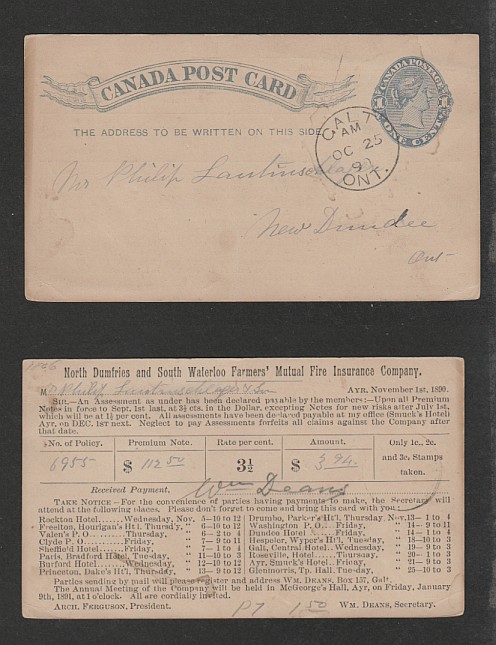 CANADA POST CARD
CANADA POSTAGE
ONE CENT
THE ADDRESS TO BE WRITTEN ON THIS SIDE
GALT
AM
OC 25
90
ONT.
Mr Philip
New Dundee
Ont
North Dumfries and South Waterloo Farmers' Mutual Fire Insurance Company.
Mr Philip & Son AYR, November 1st, 1890.
SIR.—An Assessment as under has been declared payable by the members:—Upon all Premium
Notes in force to Sept. 1st last, at 3½ cts. in the Dollar, excepting Notes for new risks after July 1st,
which will be at 1½ per cent. All assessments have been declared payable at my office (Smuck's Hotel)
Ayr, on DEC. 1st next. Neglect to pay Assessments forfeits all claims against the Company after
that date.
No. of Policy. Premium Note. Rate per cent. Amount. Only 1c., 2c.
6955 $ 112 50 3½ $ 3.94 and 3c. Stamps
taken.
Received Payment, Wm Deans
TAKE NOTICE - For the convenience of parties having payments to make, the Secretary will
attend at the following places. Please don't forget to come and bring this card with you:—
Rockton Hotel.......Wednesday, Nov. 5—10 to 12 Drumbo, Parker's H'l, Thursday, Nov. 13— 1 to 4
Freelton, Hourigan's H'l, Thursday, " 6—10 to 12 Washington P. O.... Friday, " 14— 9 to 11
Valen's P. O........Thursday, " 6— 2 to 4 Dundee Hotel.......Friday, " 14— 1 to 4
Clyde P. O..........Friday, " 7— 9 to 11 Hespeler, Wyper's H'l, Tuesday, " 18—10 to 3
Sheffield Hotel.....Friday, " 7— 1 to 4 Galt, Central Hotel...Wednesday, " 19— 9 to 3
Paris, Bradford Hotel, Tuesday, " 11—10 to 3 Roseville, Hotel.....Thursday, " 20— 1 to 3
Burford Hotel.......Wednesday, " 12—10 to 12 Ayr, Smuck's Hotel...Friday, " 21— 9 to 3
Princeton, Dake's H'l, Thursday, " 13— 9 to 12 Glenmorris, Tp. Hall, Tuesday, " 25—10 to 3
Parties sending by mail will please register and address WM. DEANS, BOX 157, Galt.
The Annual Meeting of the Company will be held in McGeorge's Hall, Ayr, on Friday, January
9th, 1891, at 1 o'clock. All are cordially invited.
ARCH. FERGUSON, President. WM. DEANS, Secretary.
1.50